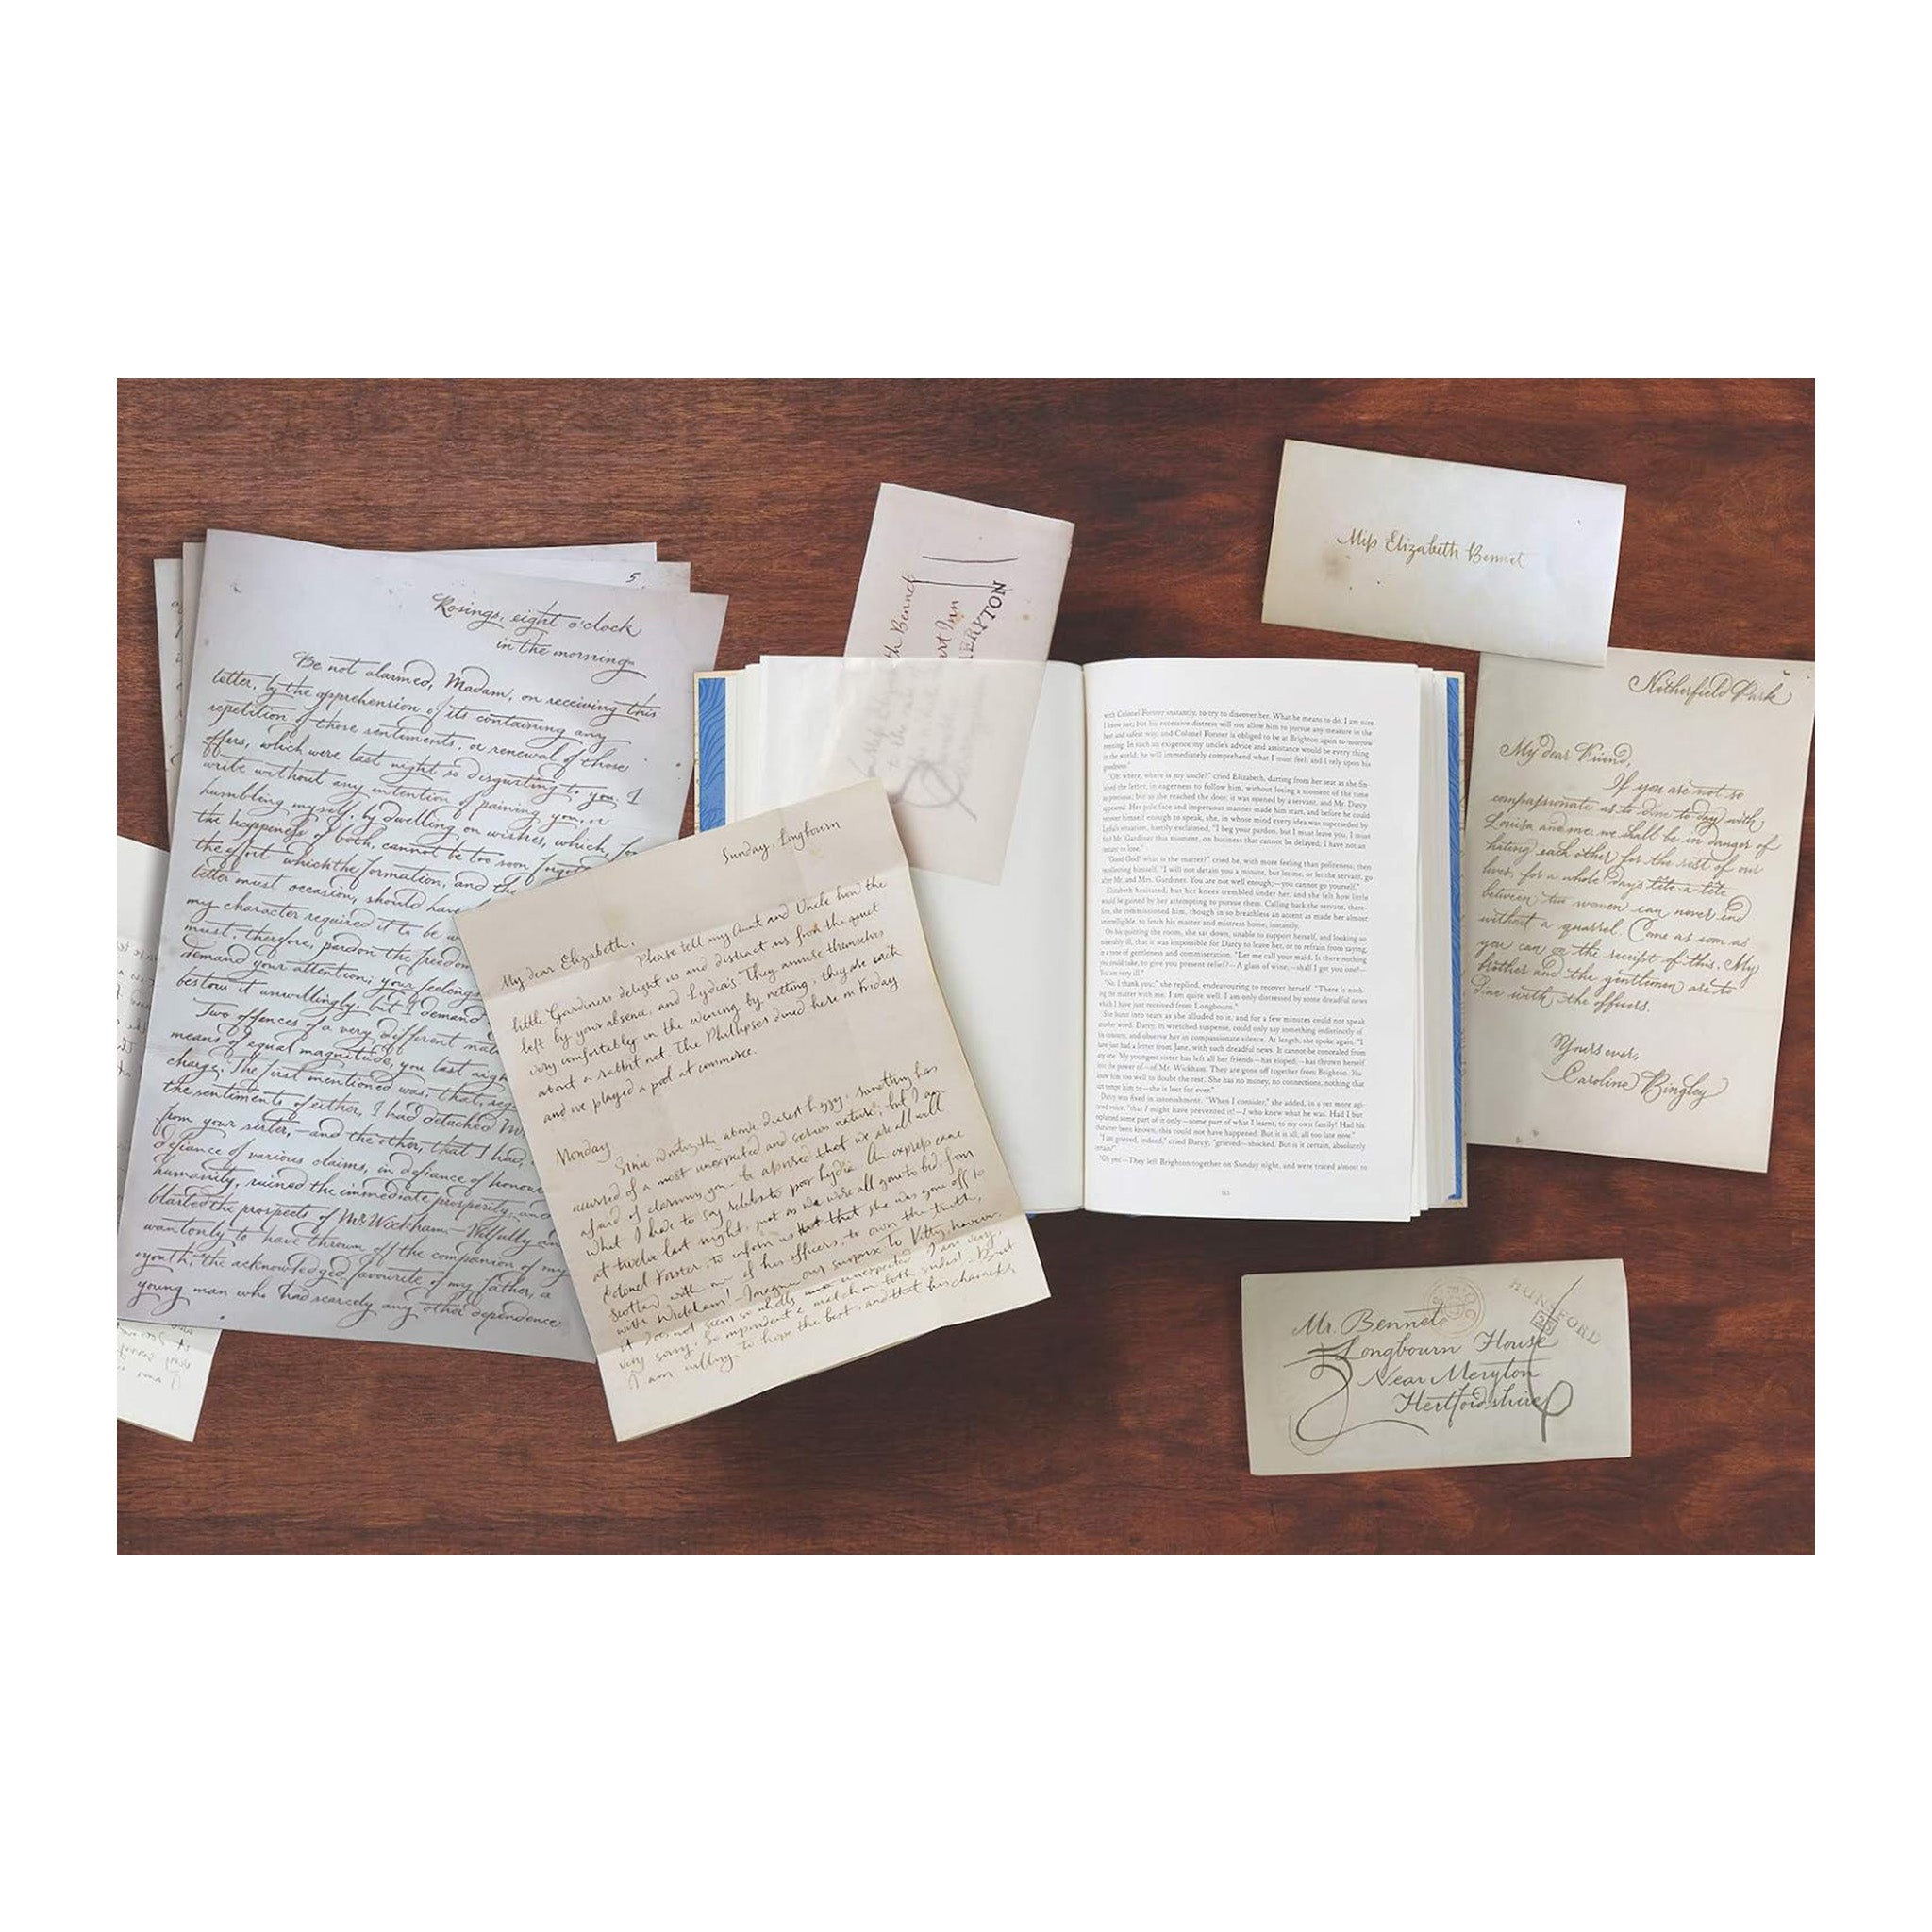 5
Rosings, eight o'clock
in the morning
Be not alarmed, Madam, on receiving this
letter, by the apprehension of its containing any
repetition of those sentiments, or renewal of those
offers, which were last night so disgusting to you. I
write without any intention of paining you, or
humbling myself, by dwelling on wishes, which, for
the happiness of both, cannot be too soon forgotten
the effort which the formation, and the
letter must occasion, should have
my character required it to be
must, therefore, pardon the freedom
demand your attention; your feelings
bestow it unwillingly, but I demand
Two offences of a very different
means of equal magnitude, you last
charge. The first mentioned was, that,
the sentiments of either, I had detached Mr.
from your sister,—and the other, that I had,
defiance of various claims, in defiance of honour
humanity, ruined the immediate prosperity, and
blasted the prospects of Mr. Wickham—Wilfully
wantonly to have thrown off the companion of my
youth, the acknowledged favourite of my father, a
young man who had scarcely any other dependence
Sunday, Longbourn
My dear Elizabeth,
Please tell my Aunt and Uncle how the
little Gardiners delight us and distract us from the quiet
left by your absence, and Lydia's. They amuse themselves
very comfortably in the evening by netting; they are each
about a rabbit net. The Phillipses dined here on Friday
and we played a pool at commerce.
Monday
Since writing the above dearest Lizzy, something has
occurred of a most unexpected and serious nature; but I am
afraid of alarming you—be assured that we are all well.
What I have to say relates to poor Lydia. An express came
at twelve last night, just as we were all gone to bed, from
Colonel Forster, to inform us that she was gone off to
Scotland with one of his officers; to own the truth,
with Wickham!—Imagine our surprise. To Kitty, however,
it does not seem so wholly unexpected. I am very,
very sorry. So imprudent a match on both sides!—But
I am willing to hope the best, and that his character
th Bennet
art Inn
ERPTON
with Colonel Forster instantly, to try to discover her. What he means to do, I am sure
I know not; but his excessive distress will not allow him to pursue any measure in the
best and safest way, and Colonel Forster is obliged to be at Brighton again to-morrow
evening. In such an exigence my uncle's advice and assistance would be every thing
in the world; he will immediately comprehend what I must feel, and I rely upon his
goodness."
"Oh! where, where is my uncle?" cried Elizabeth, darting from her seat as she fin-
ished the letter, in eagerness to follow him, without losing a moment of the time
so precious; but as she reached the door, it was opened by a servant, and Mr. Darcy
appeared. Her pale face and impetuous manner made him start, and before he could
recover himself enough to speak, she, in whose mind every idea was superseded by
Lydia's situation, hastily exclaimed, "I beg your pardon, but I must leave you. I must
find Mr. Gardiner this moment, on business that cannot be delayed; I have not an
instant to lose."
"Good God! what is the matter?" cried he, with more feeling than politeness; then
recollecting himself, "I will not detain you a minute, but let me, or let the servant, go
after Mr. and Mrs. Gardiner. You are not well enough;—you cannot go yourself."
Elizabeth hesitated, but her knees trembled under her, and she felt how little
would be gained by her attempting to pursue them. Calling back the servant, there-
fore, she commissioned him, though in so breathless an accent as made her almost
unintelligible, to fetch his master and mistress home, instantly.
On his quitting the room, she sat down, unable to support herself, and looking so
miserably ill, that it was impossible for Darcy to leave her, or to refrain from saying,
in a tone of gentleness and commiseration, "Let me call your maid. Is there nothing
you could take, to give you present relief?—A glass of wine;—shall I get you one?—
You are very ill."
"No, I thank you;" she replied, endeavouring to recover herself. "There is noth-
ing the matter with me. I am quite well. I am only distressed by some dreadful news
which I have just received from Longbourn."
She burst into tears as she alluded to it, and for a few minutes could not speak
another word. Darcy, in wretched suspense, could only say something indistinctly of
his concern, and observe her in compassionate silence. At length, she spoke again. "I
have just had a letter from Jane, with such dreadful news. It cannot be concealed from
any one. My youngest sister has left all her friends—has eloped;—has thrown herself
into the power of—of Mr. Wickham. They are gone off together from Brighton. You
know him too well to doubt the rest. She has no money, no connections, nothing that
can tempt him to—she is lost for ever."
Darcy was fixed in astonishment. "When I consider," she added, in a yet more agi-
tated voice, "that I might have prevented it!—I who knew what he was. Had I but
explained some part of it only—some part of what I learnt, to my own family! Had his
character been known, this could not have happened. But it is all, all too late now."
"I am grieved, indeed," cried Darcy; "grieved—shocked. But is it certain, absolutely
certain?"
"Oh yes!—They left Brighton together on Sunday night, and were traced almost to
Miss Elizabeth Bennet
Netherfield Park
My dear Friend,
If you are not so
compassionate as to dine to-day with
Louisa and me, we shall be in danger of
hating each other for the rest of our
lives, for a whole day's tête-à-tête
between two women can never end
without a quarrel. Come as soon as
you can on the receipt of this. My
brother and the gentlemen are to
dine with the officers.
Yours ever,
Caroline Bingley
HUNSFORD
Mr. Bennet
Longbourn House
Near Meryton
Hertfordshire